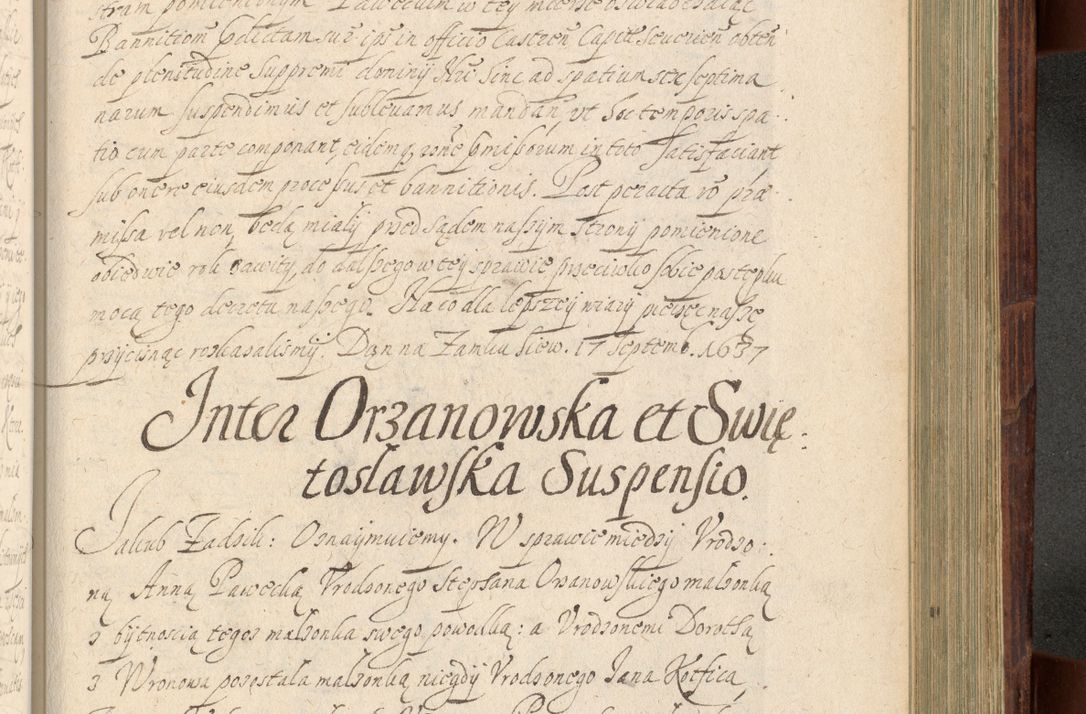 stram pomienionym Pawęckim w tey mierze oświadczaiąc
Bannitiom Edictam sup ips in officio Castren Capit Seuerien obten
de plenitudine supremi dominij Nri hinc ad spatium sex septima
narum suspendimus et subleuamus mandan, vt hoc temporis spa
tio cum parte componant, eidemq, rone pmissorum in toto satisfaciant
sub onere eiusdem processus et bannitionis. Post peracta vo præ
missa vel non, będą miały przed sądem naszym strony pomienione
obiedwie rok zawity do dalszego w tey sprawie przeciwko sobie postępku
mocą tego decretu naszego. Na co dla lepszey wiary pieczęć naszę
przycisnąć roskazalismy. Dan na Zamku Siew. 17 Septemb. 1637
Inter Orzanowska et Swię
toslawska Suspensio.
Jakub Zadzik: Oznaymuiemy. W sprawie miedzy Vrodzo
ną Anną Pawęcką Vrodzonego Stephana Orzanowskiego malzonką
z bytnoscią tegoz malzonka swego powodką: a Vrodzonemi Dorothą
z Wronowa pozostałą malzonką niegdy Vrodzonego Jana Kotfica,